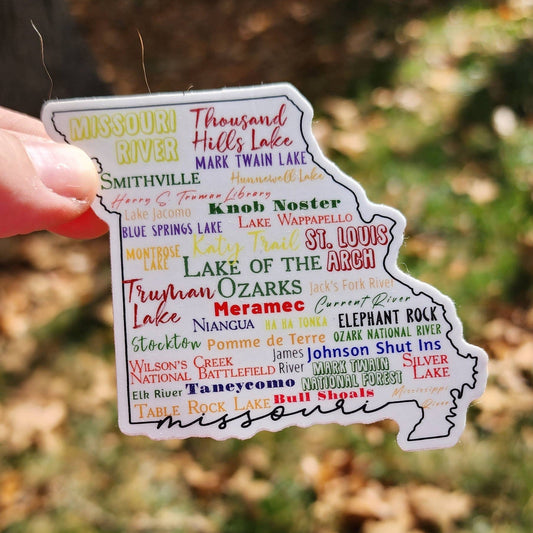 MISSOURI
RIVER
Thousand
Hills Lake
MARK TWAIN LAKE
SMITHVILLE
Hunnewell Lake
Harry S Truman Library
Lake Jacomo
Knob Noster
BLUE SPRINGS LAKE
LAKE WAPPAPELLO
MONTROSE
LAKE
Katy Trail
ST. LOUIS
ARCH
LAKE OF THE
OZARKS
Jack's Fork River
Truman
Lake
Meramec
Current River
NIANGUA
HA HA TONKA
ELEPHANT ROCK
OZARK NATIONAL RIVER
Stockton
Pomme de Terre
James
River
Johnson Shut Ins
WILSON'S CREEK
NATIONAL BATTLEFIELD
MARK TWAIN
NATIONAL FOREST
SILVER
LAKE
Elk River
Taneycomo
Mississippi
River
TABLE ROCK LAKE
Bull Shoals
missouri